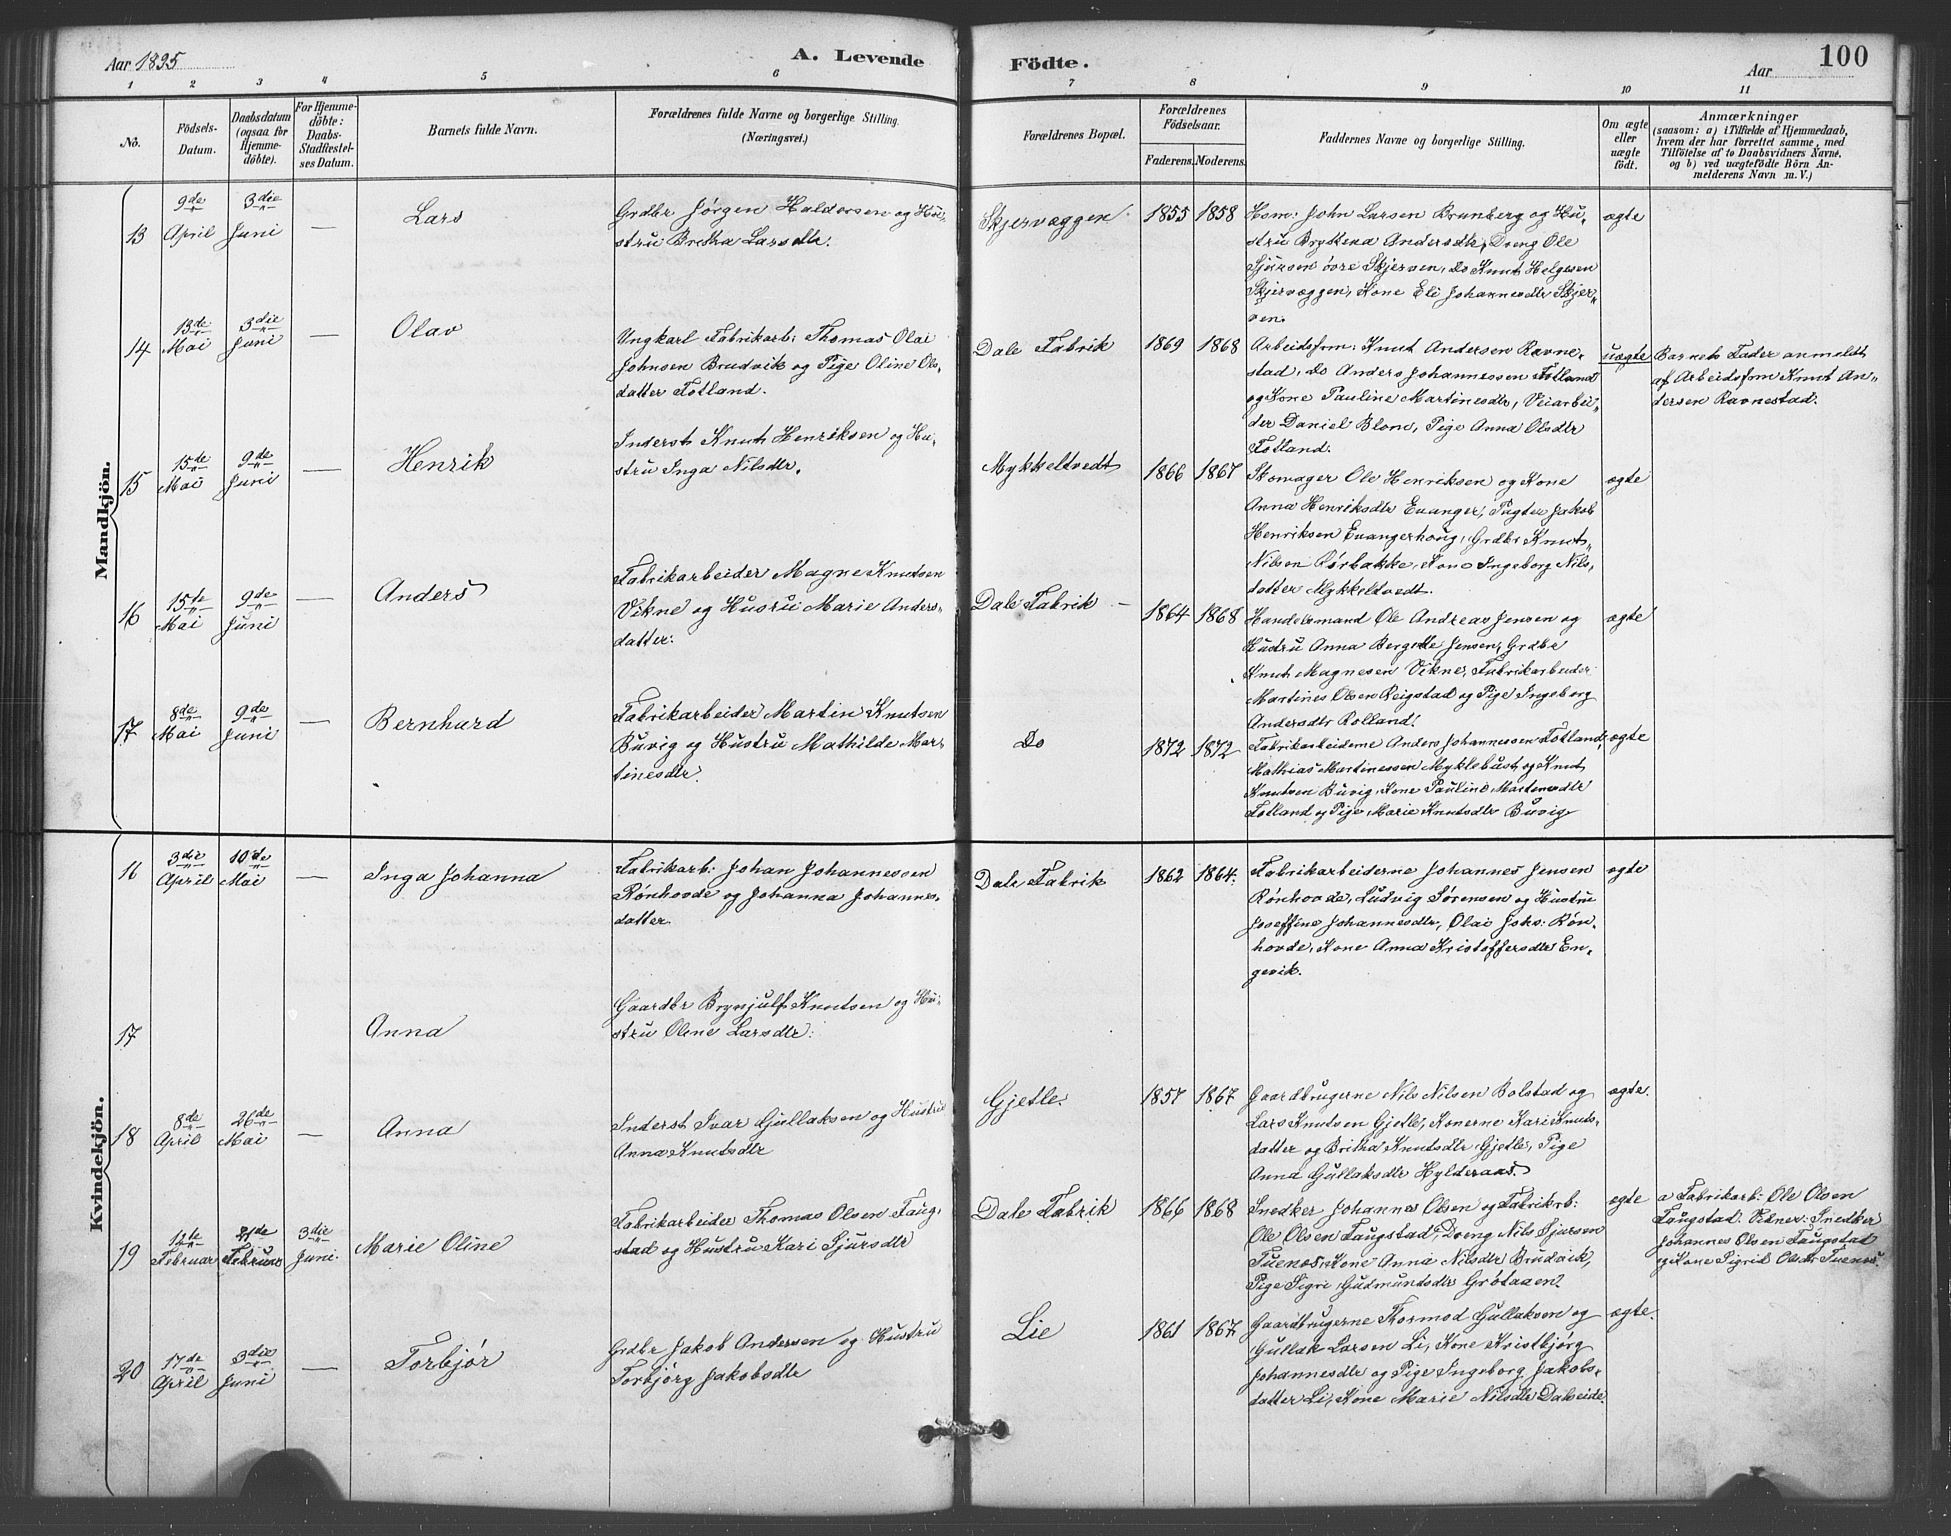 Aar 1895
A. Levende
Födte.
Aar
100
1 2 3 4 5 6 7 8 9 10 11
No.
Födsels-
Datum.
Daabsdatum
(ogsaa for
Hjemme-
döbte).
For Hjemme-
döbte:
Daabs-
Stadfæstel-
ses Datum.
Barnets fulde Navn.
Forældrenes fulde Navne og borgerlige Stilling.
(Næringsvei.)
Forældrenes Bopæl.
Forældrenes
Födselsaar.
Faderens. Moderens.
Faddernes Navne og borgerlige Stilling.
Om ægte
eller
uægte
födt.
Anmærkninger
(saasom: a) i Tilfælde af Hjemmedaab,
hvem der har forrettet samme, med
Tilföielse af to Daabsvidners Navne,
og b) ved uægtefödte Börn An-
melderens Navn m. V.)
Mandkjön.
13
9de
April
3die
Juni
—
Lars
Grdbr Jørgen Haldorsen og Hu-
stru Britha Larsdtr.
Skjervæggen
1855 1858
Hsm: John Larsen Brunberg og Hu-
stru Bryttena Andersdtr, Dreng Ole
Sjursen övre Skjerven, Do Knut Helgesen
Skjervæggen, Kone Eli Johannesdtr Skjer-
ven.
ægte
14
13de
Mai
3die
Juni
—
Olav
Ungkarl Fabrikarb: Thomas Olai
Johnsen Brudvik og Pige Oline Ols-
datter Fotland.
Dale Fabrik
1869 1868
Arbeidsfrm: Knut Andersen Ravne-
stad, Do Anders Johannessen Fotland
og Kone Pauline Martinesdtr, Veiarbei-
der Daniel Blom, Pige Anna Olsdtr
Fotland.
uægte
Barnets Fader anmeldt
af Arbeidsfrm Knut An-
dersen Ravnestad.
15
15de
Mai
9de
Juni
—
Henrik
Inderst Knut Henriksen og Hu-
stru Inga Nilsdtr.
Mykkeltvedt
1866 1867
Skomager Ole Henriksen og Kone
Anna Henriksdtr Evanger, Pagter Jakob
Henriksen Evangerhoug, Grdbr Knut
Nilsen Rørbakke, Kone Ingeborg Nils-
datter Mykkeltvedt.
ægte
16
15de
Mai
9de
Juni
—
Anders
Fabrikarbeider Magne Knutsen
Vikne og Husru Marie Anders-
datter.
Dale Fabrik —
1864 1868
Handelsmand Ole Andreas Jensen og
Hustru Anna Bergitte Jensen, Grdbr
Knut Magnesen Vikne, Fabrikarbeider
Martines Olsen Reigstad og Pige Ingeborg
Andersdtr Rolland.
ægte
17
8de
Mai
9de
Juni
—
Bernhard
Fabrikarbeider Martin Knutsen
Buvig og Hustru Mathilde Mar-
tinesdtr.
Do
1872 1872
Fabrikarbeiderne Anders Johannessen Fotland,
Mathias Martinessen Myklebust og Knut
Knutsen Buvig, Kone Pauline Martinesdtr
Fotland og Pige Marie Knutsdtr Buvig
ægte
Kvindekjön.
16
3die
April
10de
Mai
—
Inga Johanna
Fabrikarb: Johan Johannessen
Rönhovde og Johanna Johannes-
datter.
Dale Fabrik
1862 1864.
Fabrikarbeiderne Johannes Jensen
Rönhovde, Ludvig Sørensen og Hustru
Joseffine Johannesdtr, Olai Johs: Rön-
hovde, Kone Anna Kristoffersdtr En-
gevik.
ægte
17
Anna
Gaardbr Brynjulf Knutsen og Hu-
stru Oline Larsdtr.
18
8de
April
26de
Mai
—
Anna
Inderst Ivar Gullaksen og Hustru
Anna Knutsdtr
Gjetle.
1857 1867
Gaardbrugerne Nils Nilsen Bolstad og
Lars Knutsen Gjetle, Konerne Kari Knuts-
datter og Britha Knutsdtr Gjetle, Pige
Anna Gullaksdtr Hylderaas.
ægte.
19
Februar
Februar
3die
Juni.
Marie Oline
Fabrikarbeider Thomas Olsen Faug-
stad og Hustru Kari Sjursdtr
Dale Fabrik
1866 1868
Snedker Johannes Olsen og Fabrikrb:
Ole Olsen Faugstad, Dreng Nils Sjursen
Fuenos, Kone Anna Nilsdtr Brudvik,
Pige Sigri Gudmundsdtr Grötaaen.
ægte
a Fabrikarb: Ole Olsen
Faugstad. Vidner: Snedker
Johannes Olsen Faugstad
og Kone Sigrid Olsdtr Fuenos.
20
17de
April
3die
Juni
—
Torbjør
Grdbr Jakob Andersen og Hustru
Torbjörg Jakobsdtr
Lie
1861 1867
Gaardbrugerne Thormod Gullaksen og
Gullak Larsen Li, Kone Kristbjørg
Johannesdtr og Pige Ingeborg Jakobs-
datter Li, Kone Marie Nilsdtr Daleeide.
ægte.